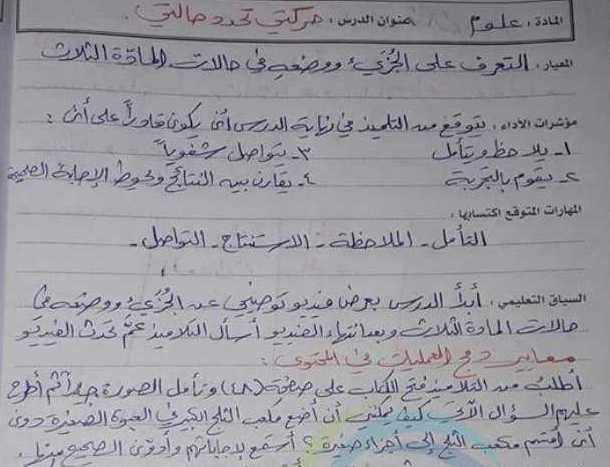 المادة : علوم عنوان الدرس : حركتي تحدد حالتي.
المعيار : التعرف على الجُزيء ووضعه في حالات المادّة الثلاث
مؤشرات الأداء : يتوقع من التلميذ في نهاية الدرس أن يكون قادراً على أن :
١- يلاحظ ويتأمل ٣- يتواصل شفوياً
٢- يقوم بالتجربة ٤- يقارن بين النتائج ويحوط الإجابة الصحيحة
المهارات المتوقع اكتسابها :
التأمل - الملاحظة - الاستنتاج - التواصل -
السياق التعليمي : أبدأ الدرس بعرض فيديو توضيحي عن الجُزيء ووضعه في
حالات المادة الثلاث وبعد انتهاء الفيديو أسأل التلاميذ عمّ تحدث الفيديو
معايير دمج العمليات في المحتوى :
أطلب من التلاميذ فتح الكتاب على صفحة (٤٨) وتأمل الصورة جيداً ثم أطرح
عليهم السؤال الآتي كيف يمكنني أن أضع مكعب الثلج الكبير في العبوة الصغيرة دون
أن أقسّم مكعب الثلج إلى أجزاء صغيرة ؟ أستمع لإجاباتهم وأدوّن الصحيح منها.